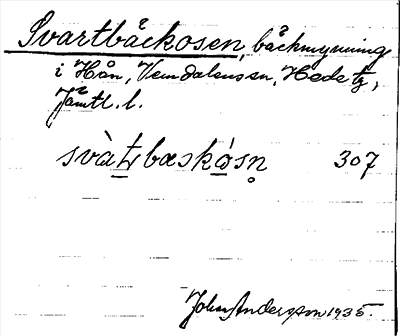 Svartbäckosen, bäckmynning
i Hån, Vemdalens sn, Hede tg,
Jämtl. l.
svàtr̥bæskósn̥ 307
John Andersson 1935.